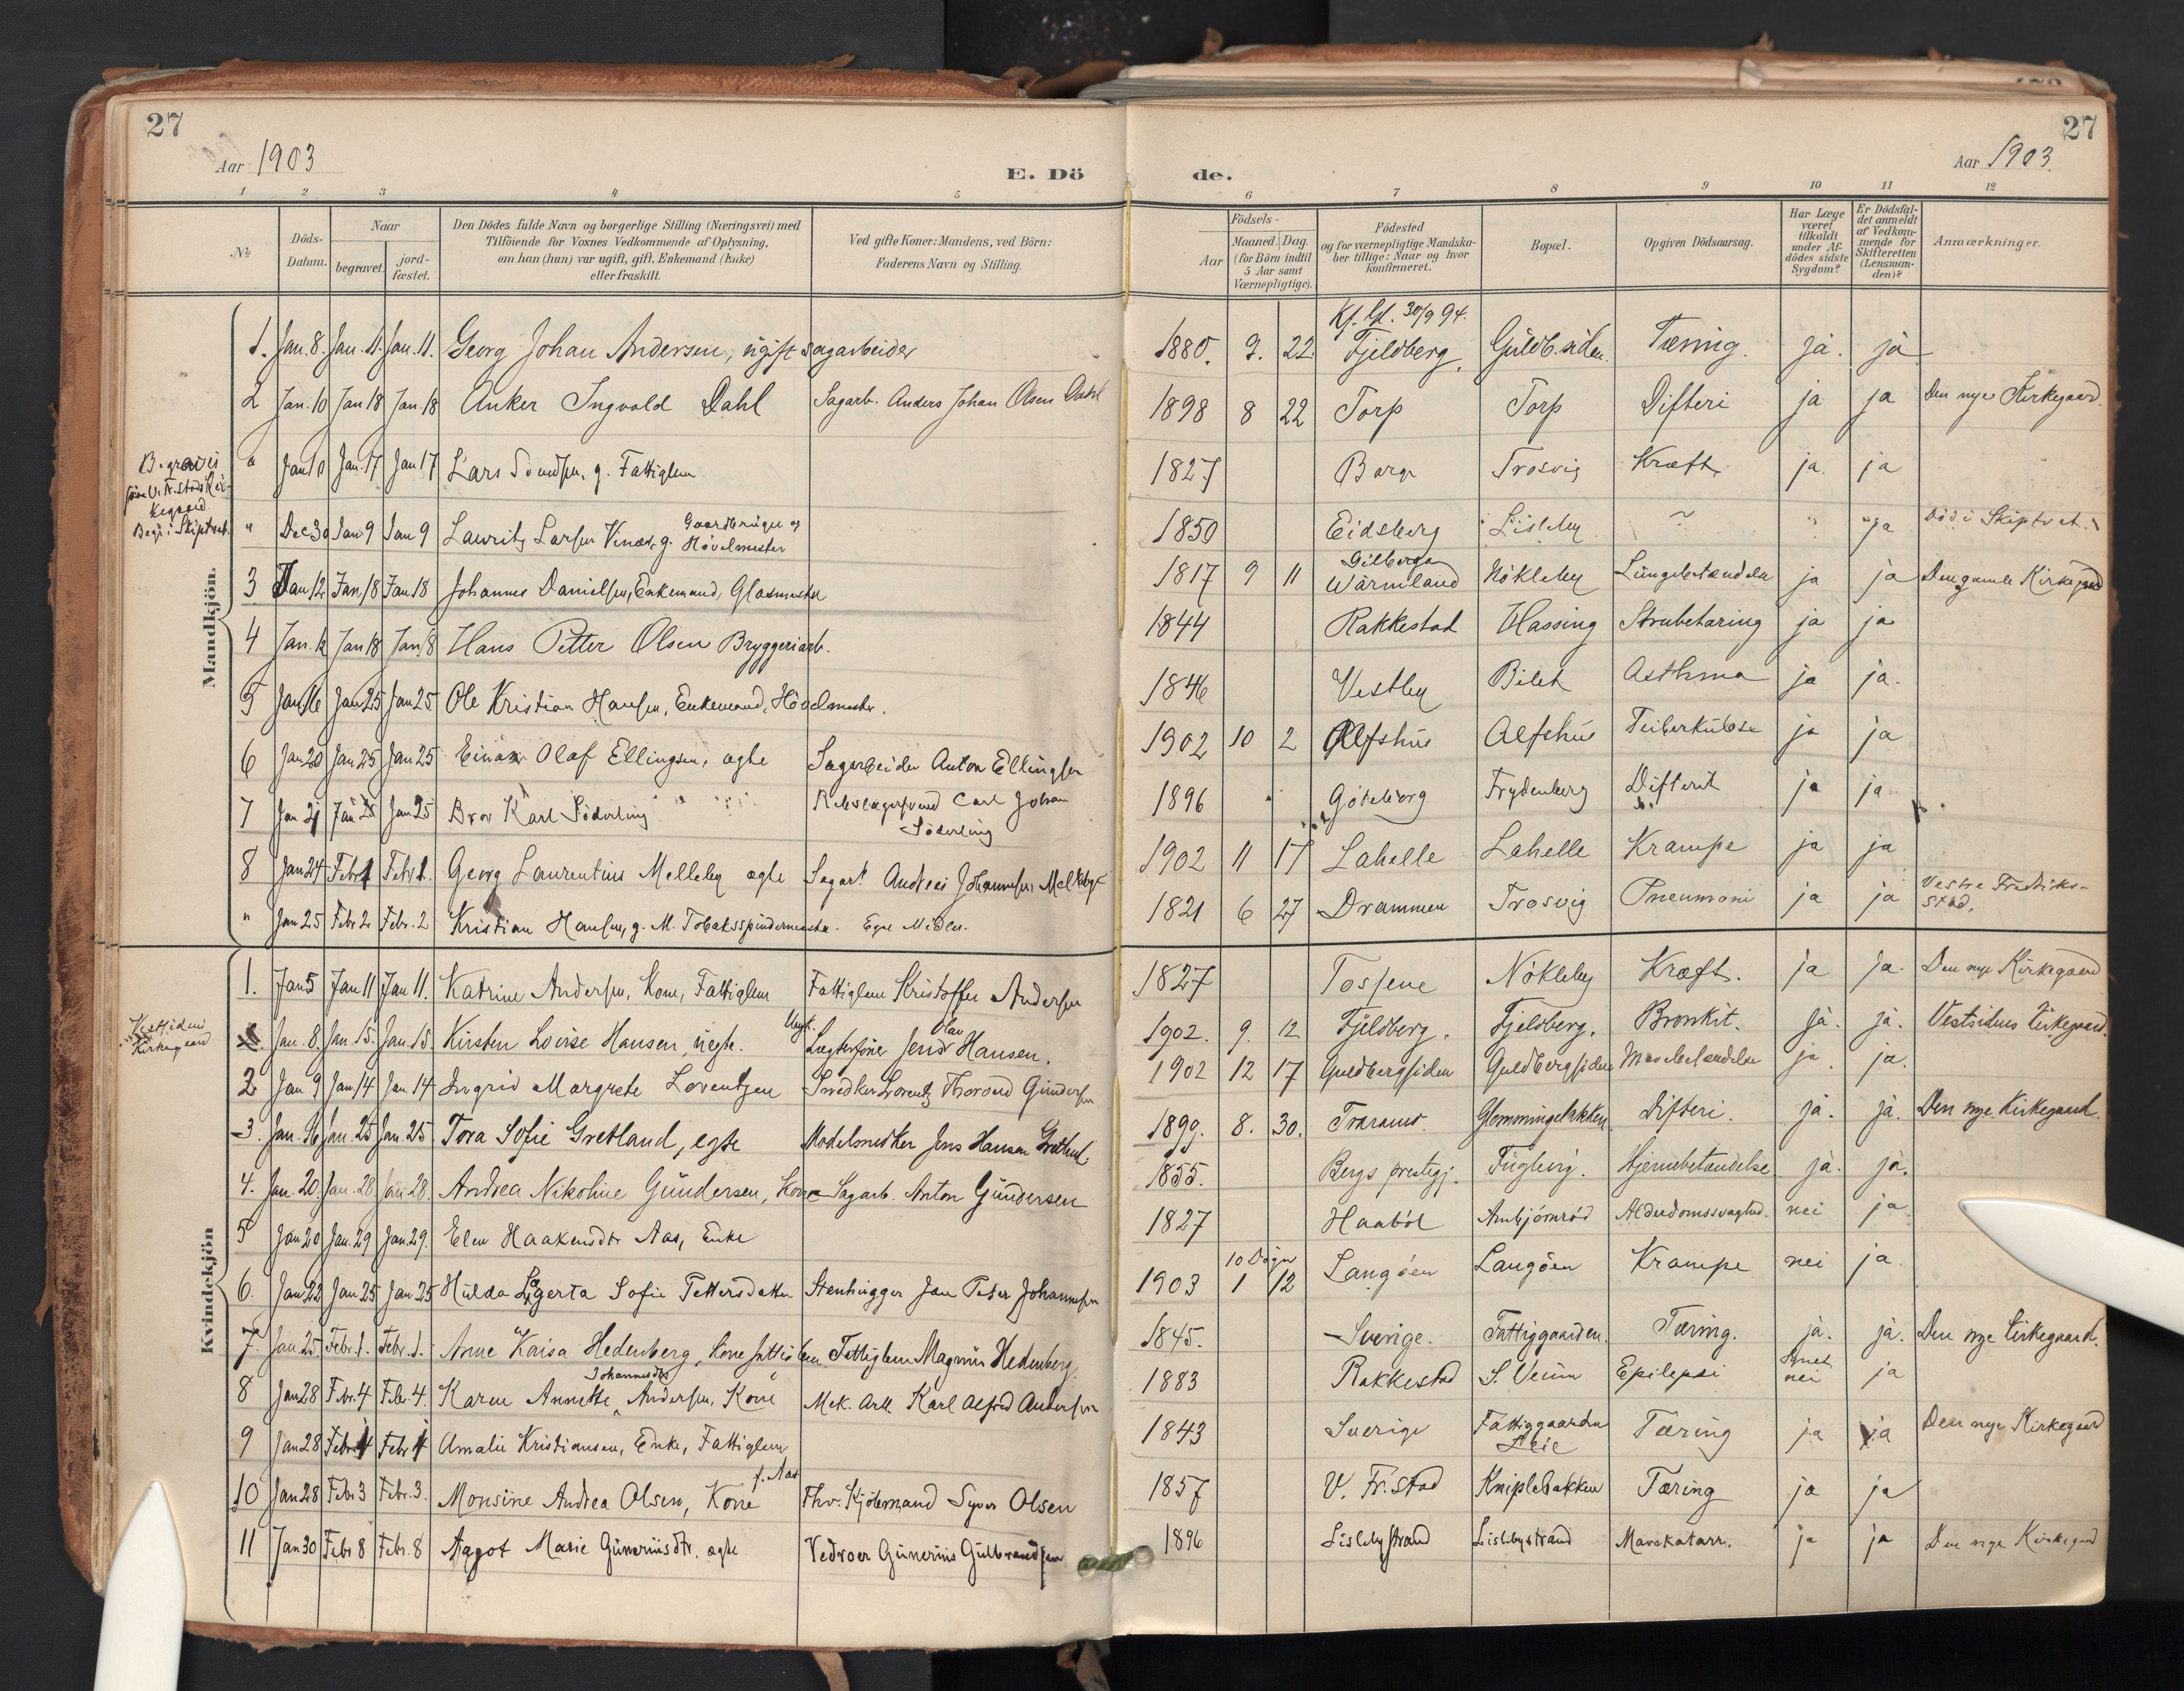 27
27
Aar 1903
E. Dö
de.
Aar 1903.
1 2 3 4 5 6 7 8 9 10 11 12
No
Döds-
Datum.
Naar
begravet.
jord-
fæstet.
Den Dödes fulde Navn og borgerlige Stilling (Næringsvei) med
Tilföiende for Voxnes Vedkommende af Oplysning,
om han (hun) var ugift, gift, Enkemand (Enke)
eller fraskilt.
Ved gifte Koner: Mandens, ved Börn:
Faderens Navn og Stilling.
Födsels-
Aar
Maaned. Dag.
(for Börn indtil
5 Aar samt
Værnepligtige).
Födested
og for værnepligtige Mandska-
ber tillige: Naar og hvor
konfirmeret.
Bopæl.
Opgiven Dödsaarsag.
Har Læge
været
tilkaldt
under Af-
dödes sidste
Sygdom?
Er Dödsfal-
det anmeldt
af Vedkom-
mende for
Skifteretten
(Lensman-
den)?
Anmærkninger.
Mandkjön.
Kf. Gl. 30/9 94.
1. Jan. 8. Jan. 11. Jan. 11. Georg Johan Andersen, ugift sagarbeider 1880. 9. 22. Fjeldberg. Guldb.siden. Tæring. ja. ja
2 Jan. 10 Jan 18 Jan. 18 Anker Ingvold Dahl Sagarb. Anders Johan Olsen Dahl 1898 8 22 Torp Torp Difteri ja ja Den nye Kirkegaard.
" Jan 10 Jan. 17 Jan 17 Lars g. Fattiglem 1827 Borge Trosvig Kræft ja ja
Kirkegaard
Begr. i Skiptvet.
" Dec 30 Jan 9 Jan 9 Lauritz Larsen g. Gaardbruger og
Hövelmester 1850 Eidsberg Lisleby " " ja Död i Skiptvet.
3 Jan 12 Jan. 18 Jan 18 Johannes Danielsen, Enkemand, Glasmester 1817 9 11 Gilberga
Wärmland Nökleby Lungebetændelse ja ja Den gamle Kirkegaard
4 Jan. 12 Jan 18 Jan 18 Hans Petter Olsen Bryggeriarb. 1844 Rakkestad Hassing Strubetæring ja ja
5 Jan. 16 Jan 25 Jan 25 Ole Kristian Hansen, Enkemand, Hövelmester. 1846 Vestby Bilet Asthma ja ja.
6 Jan 20 Jan 25 Jan 25 Einar Olaf Ellingsen, ægte Sagarbeider Anton Ellingsen 1902 10 2 Alfshus Alfshus Tuberkulose ja ja
7 Jan 21 Jan 25 Jan 25 Bror Karl Söderling " Carl Johan
Söderling 1896 Göteborg Frydenberg Difterit ja ja
8 Jan 24 Febr 1 Febr 1. Georg Laurentius Melleby ægte Sagarb. Andreas Johannesen Melleby 1902 11 17 Lahelle Lahelle Krampe ja ja
" Jan 25 Febr 2 Febr. 2 Kristian Hansen, g. M. Tobaksspindermester. Egne Midler. 1821 6 27 Drammen Trosvig Pneumoni ja ja Vestre Fredriks-
stad.
Kvindekjön
1. Jan 5 Jan 11 Jan 11. Katrine Andersen, Kone, Fattiglem Fattiglem Kristoffer Andersen 1827 Tossene Nökleby Kræft. ja ja. Den nye Kirkegaard
Vestsidens
Kirkegaard
Jan. 8. Jan. 15. Jan. 15. Kirsten Lovise Hansen, uegte. Ungk.
Olav
Jens Hansen. 1902. 9. 12. Fjeldberg. Fjeldberg. Bronkit. ja. ja. Vestsidens Kirkegaard.
2 Jan 9 Jan. 14 Jan 14 Ingrid Margrete Lorentzen Snedker Lorentz Thorvald Gundersen 1902 12 17 Guldbergsiden Guldbergsiden Mavebetændelse ja ja.
3. Jan. 16 Jan. 25 Jan. 25 Tora Sofie Gretland, egte Modelsnedker Jens Hansen Gretland. 1899. 8. 30. Traraus. Glommingebakken. Difteri. ja. ja. Den nye Kirkegaard.
4. Jan. 20. Jan. 28 Jan 28. Andrea Nikoline Gundersen, Kone Sagarb. Anton Gundersen 1855. Bergs prestegj. Fuglevig. Hjernebetændelse. ja. ja.
5 Jan 20 Jan. 29 Jan. 29. Elen Haakensdtr Aas, Enke 1827 Haaböl Ambjörnröd Alderdomssvaghed. nei ja
6. Jan 22 Jan 25 Jan 25 Hulda Lagerta Sofie Pettersdatter Stenhugger Jan Peter Johannesen 10 Dager
1903 1 12 Langöen Langöen Krampe nei ja
7. Jan. 25 Febr. 1. Febr. 1. Anne Kaisa Hedenberg, Kone fattiglem Fattiglem Magnus Hedenberg. 1845. Sverige. Fattiggaarden. Tæring. ja. ja. Den nye Kirkegaard.
8 Jan 28 Febr. 4 Febr. 4. Karen Annette Johannesdtr Andersen, Kone Mek. Arb. Karl Alfred Andersen 1883 Rakkestad S. Veum Epilepsi nei ja
9 Jan 28 Febr 4 Febr 4 Amalie Kristiansen, Enke, Fattiglem 1843 Sverige Fattiggaarden
Leie Tæring ja ja Den nye Kirkegaard
10 Jan 28 Febr 3 Febr. 3. Monsine Andrea Olsen, Kone f. Aas Fhv. Kjölemand Syver Olsen 1857 V. Fr.stad Kniplebakken Tæring ja ja
11 Jan 30 Febr 8 Febr. 8 Aagot Marie Gunerusdtr. ægte Gunerius Gulbrandsen 1896 Lislebystrand Lislebystrand Mavekatarr. ja ja Den nye Kirkegaard